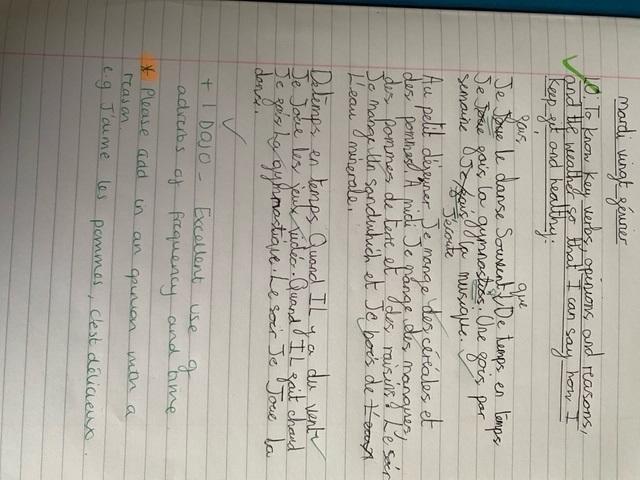 mardi vingt février
LO: To know key verbs, opinions and reasons,
and the weather so that I can say how I
keep fit and healthy.
fais que
Je Joue le danse Souvent. De temps en temps
Je Joue fais la gymnastics. Une fois par
semaine Je fais J'écoute la musique.
Au petit déjeuner Je mange des céréales et
des pommes. A midi Je mange des mangues,
des pommes de terre et des raisins. Le soir
Je mange un sandwich et Je bois de
L'eau minérale.
De temps en temps Quand IL y a du vent
Je Joue les jeux vidéo. Quand IL fait chaud
Je fais La gymnastique. Le soir Je Joue la
danse.
+ 1 DOJO - Excellent use of
adverbs of frequency and time
* Please add in an opinion with a
reason.
e.g J'aime les pommes, c'est délicieux.